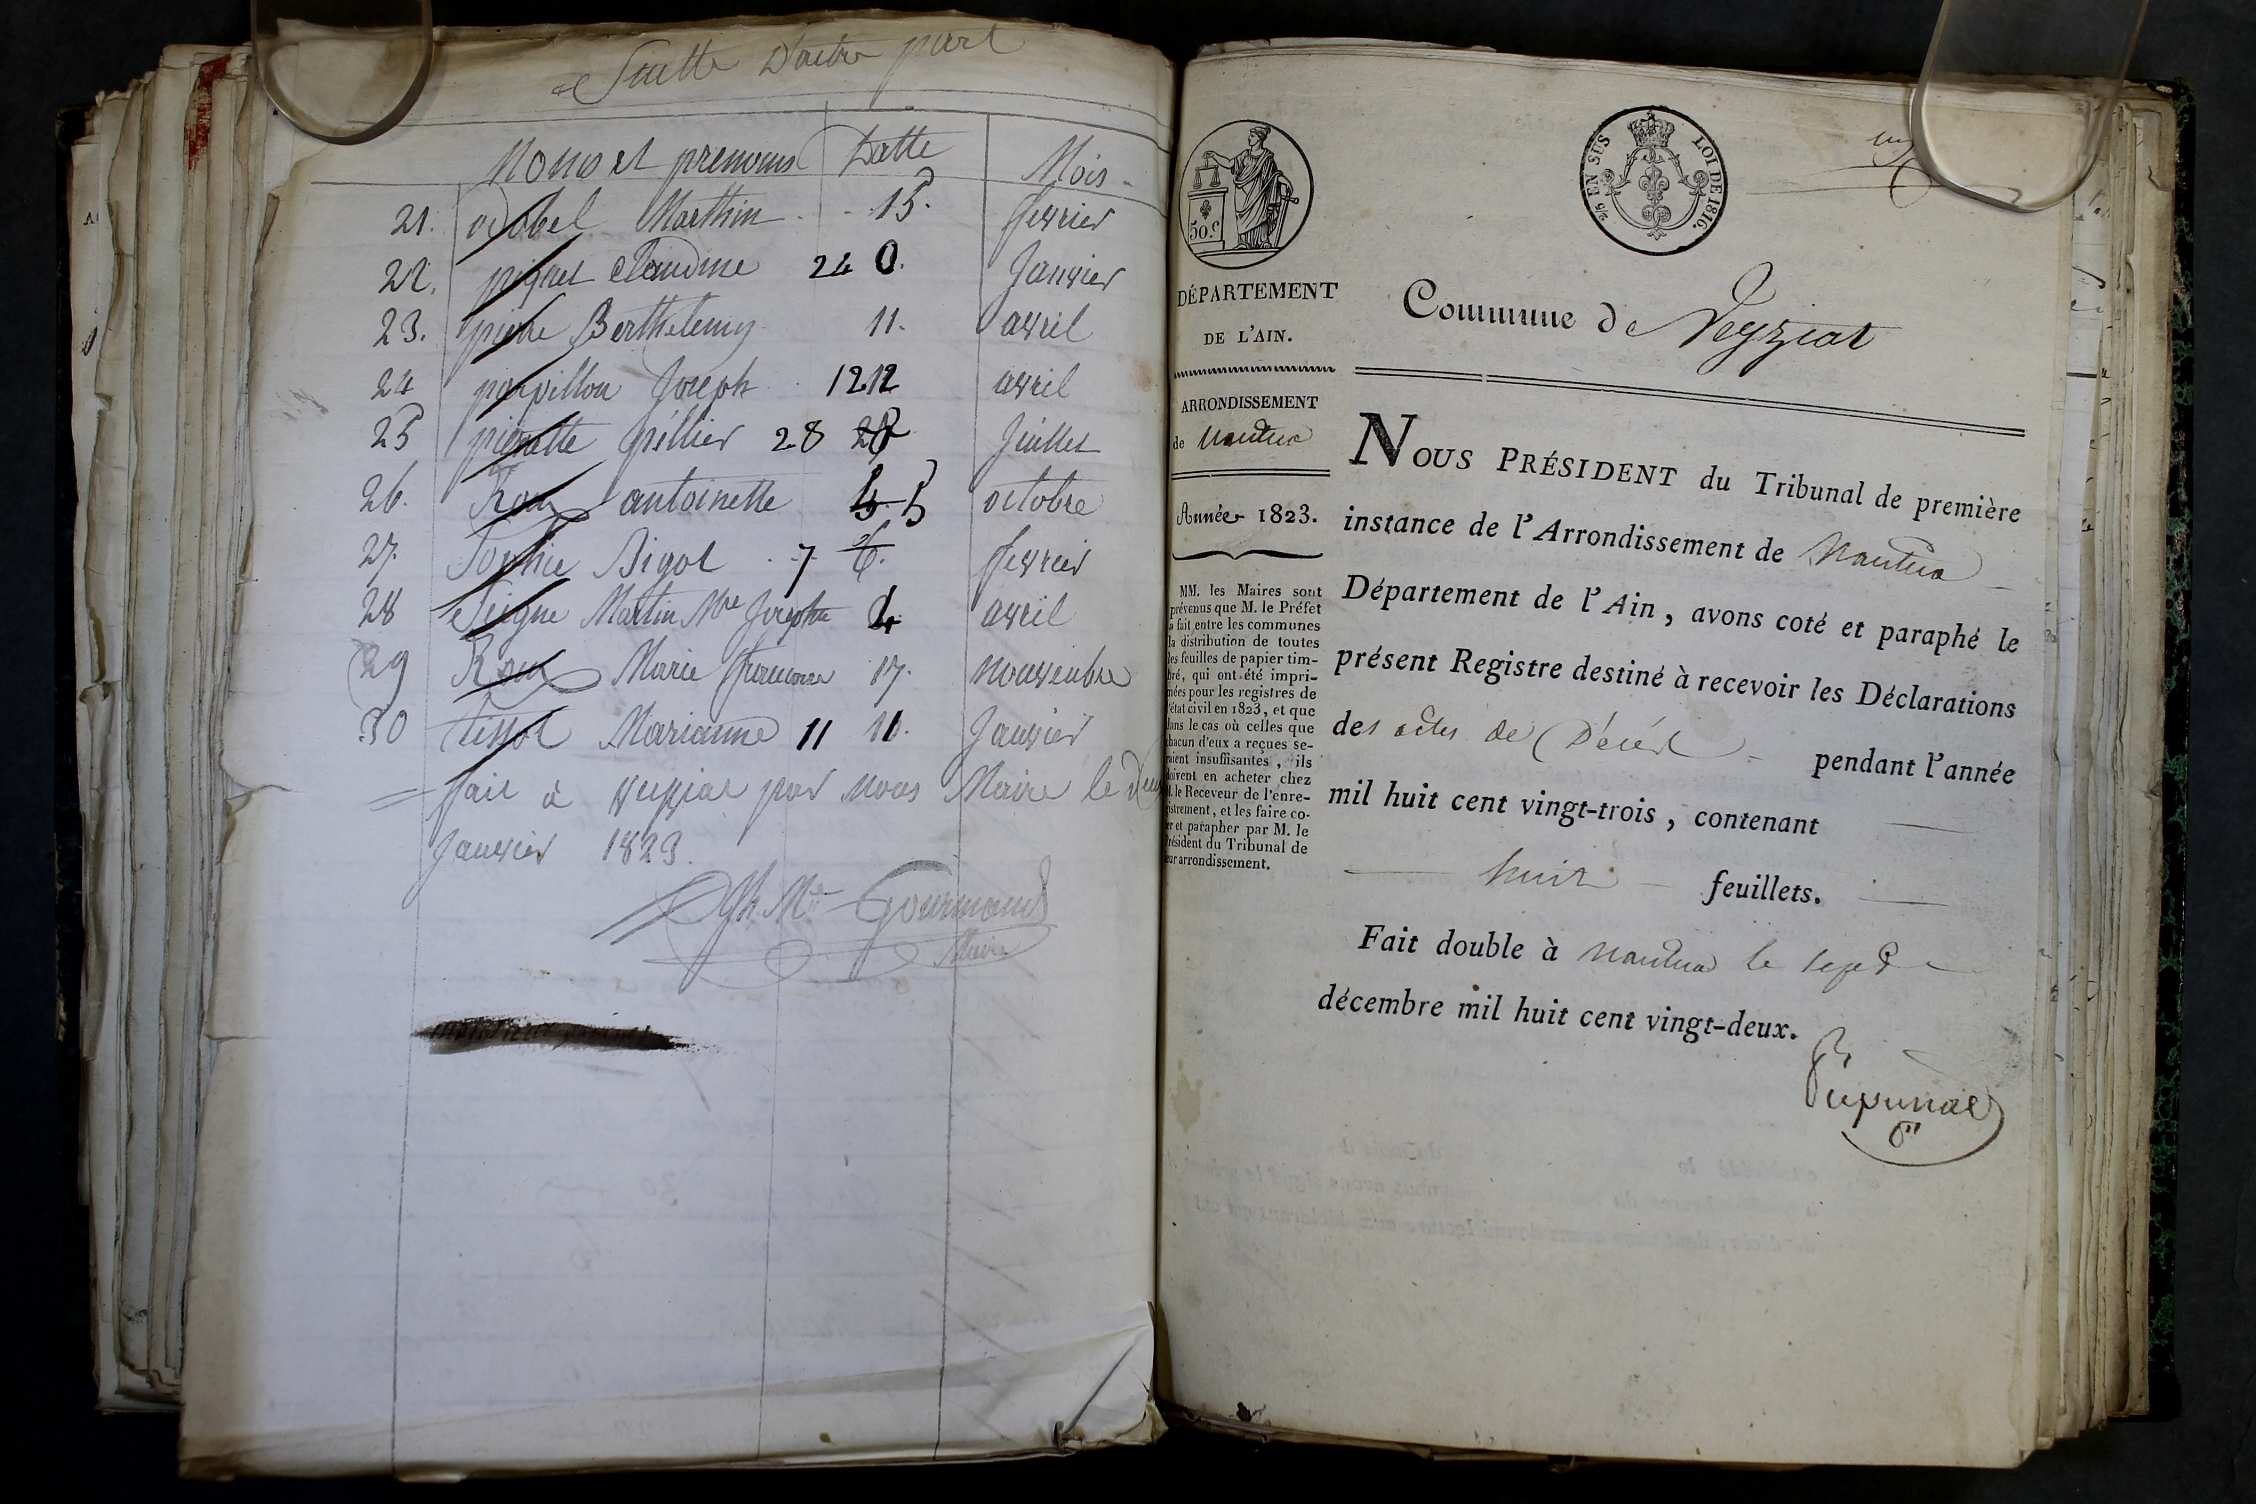 Suitte D'autre part
Noms et prenoms Datte Mois
21. odobel Marthin 15. fevrier
22. piquet Claudine 24 0. Janvier
23. pierre Berthelemy 11. avril
24 papillon Joseph 12 12 avril
25 pierrette pillier 28 28 Juillet
26. Roux antoinette 5 5 octobre
27. Sophie Bigot 7 6. fevrier
28 Seigne Martin Mie Josephte 4 avril
29 Roux Marie francoise 17. nouvenbre
30 tissot Marianne 11 11. Janvier
fait à Veyziat par nous Maire le deux
Janvier 1823.
Gourmand
Maire
50.C
2/5 EN SUS LOI DE 1816.
un
DÉPARTEMENT
DE L'AIN.
ARRONDISSEMENT
de Nantua
Année 1823.
MM. les Maires sont
prévenus que M. le Préfet
a fait entre les communes
la distribution de toutes
les feuilles de papier tim-
bré, qui ont été impri-
mées pour les registres de
l'état civil en 1823, et que
dans le cas où celles que
chacun d'eux a reçues se-
raient insuffisantes, ils
doivent en acheter chez
M. le Receveur de l'enre-
gistrement, et les faire co-
ter et parapher par M. le
Président du Tribunal de
leur arrondissement.
Commune de Veyziat
NOUS PRÉSIDENT du Tribunal de première
instance de l'Arrondissement de Nantua
Département de l'Ain, avons coté et paraphé le
présent Registre destiné à recevoir les Déclarations
des actes de Décès pendant l'année
mil huit cent vingt-trois, contenant
huit feuillets.
Fait double à Nantua le sept
décembre mil huit cent vingt-deux.